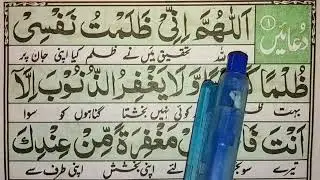 دعائیں ①
اَللّٰهُمَّ اِنِّیْ ظَلَمْتُ نَفْسِیْ
تحقیق میں نے ظلم کیا اپنی جان پر
ظُلْمًا وَّلَا یَغْفِرُ الذُّنُوْبَ اِلَّا
بہت کوئی نہیں بخشتا گناہوں کو سوا
اَنْتَ مَغْفِرَةً مِّنْ عِنْدِكَ
تیرے اپنی بخشش اپنی طرف سے